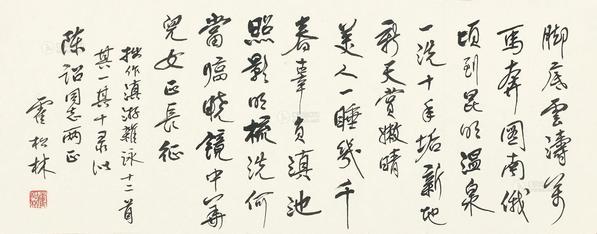 脚底雲濤萬
馬奔圖南俄
頃到昆明溫泉
一洗十年垢新地
新天賞嫩晴
美人一睡幾千
春辜負滇池
照影明梳洗何
當臨曉鏡中華
兒女正長征
拙作滇游雜詠十二首
其一其十录似
陳詔同志兩正
霍松林